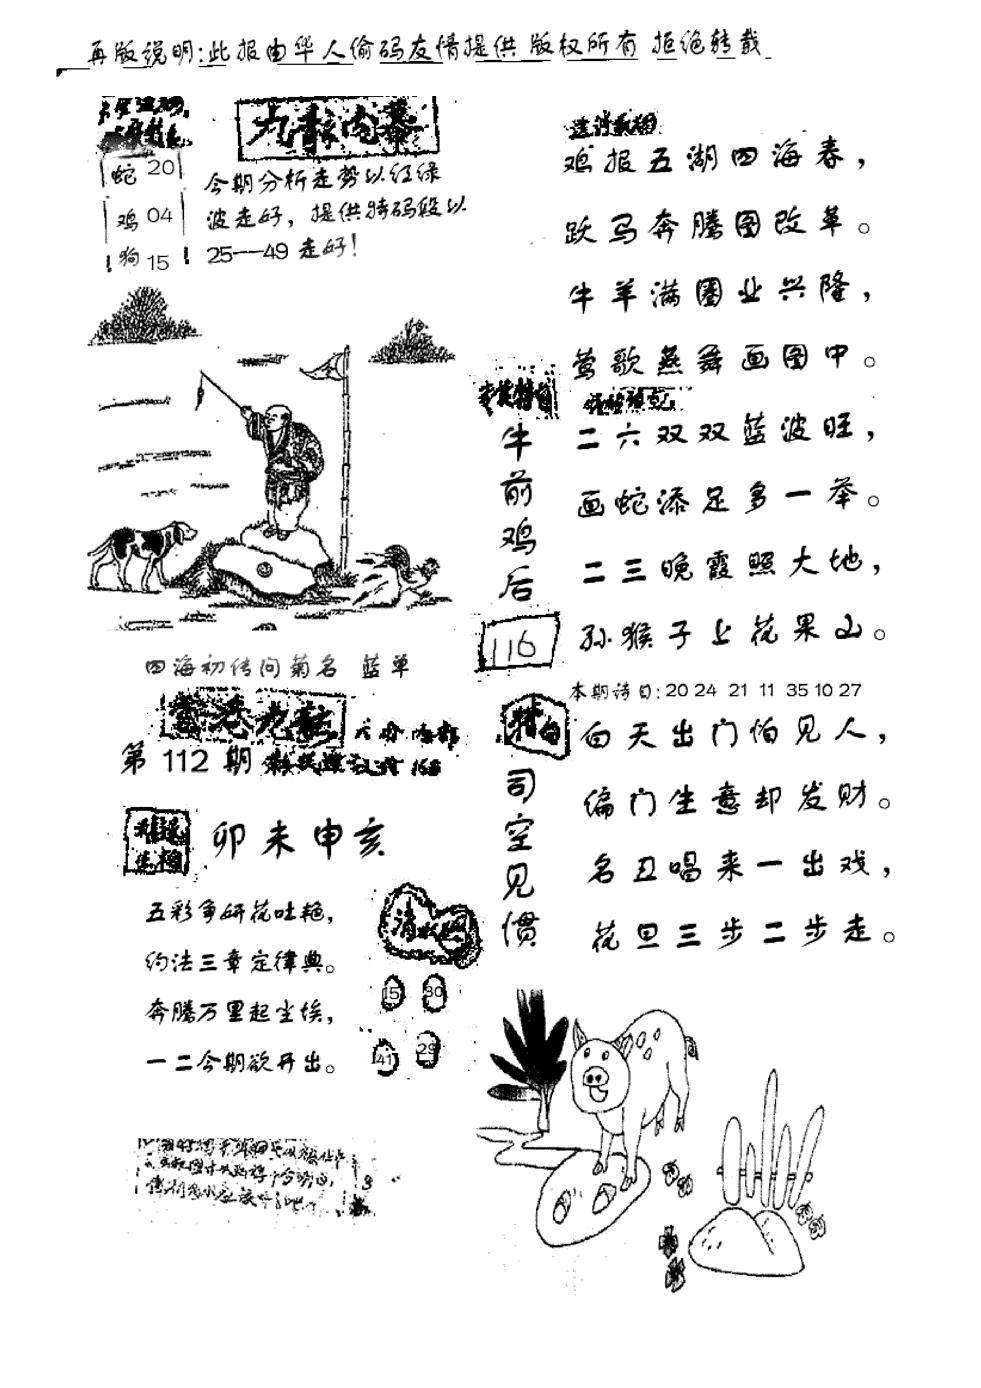 再版说明:此报由华人偷码友情提供 版权所有 拒绝转载
九龍内幕
蛇 20
鸡 04
狗 15
今期分析走势以红绿
波走好，提供特码段以
25---49 走好！
四海初传问菊名 蓝单
香港九龍
第 112 期
卯未申亥
五彩争妍花吐艳，
约法三章定律典。
奔腾万里起尘埃，
一二今期欲开出。
15 30
41 29
鸡报五湖四海春，
跃马奔腾图改革。
牛羊满圈业兴隆，
莺歌燕舞画图中。
牛前鸡后
116
二六双双蓝波旺，
画蛇添足多一举。
二三晚霞照大地，
孙猴子上花果山。
本期诗曰:20 24 21 11 35 10 27
司空见惯
白天出门怕见人，
偏门生意却发财。
名丑唱来一出戏，
花旦三步二步走。